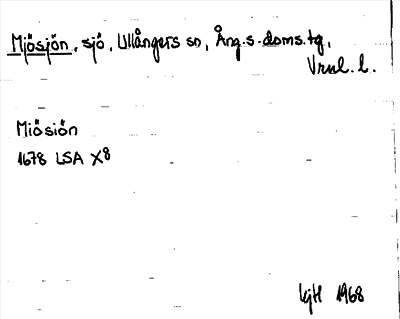 Mjösjön, sjö, Ullångers sn, Ång.s.doms.tg,
Vnul. l.
Miösiön
1678 LSA X8
kjH 1968